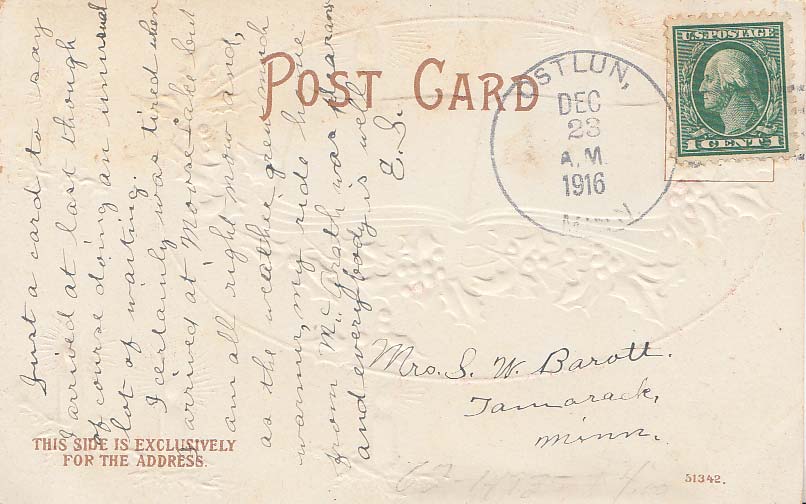 Just a card to say
I arrived at last though
of course doing an unusual
lot of waiting.
I certainly was tired when
I arrived at Moose Lake but
am all right now and,
as the weather grew much
warmer, my ride home
from McGrath was pleasant
and everybody is well.
E. S.
POST CARD
OSTLUN,
DEC
23
A.M.
1916
MINN
U.S. POSTAGE
1 CENT 1
Mrs. S. W. Barott.
Tamarack,
Minn.
THIS SIDE IS EXCLUSIVELY
FOR THE ADDRESS.
51342.